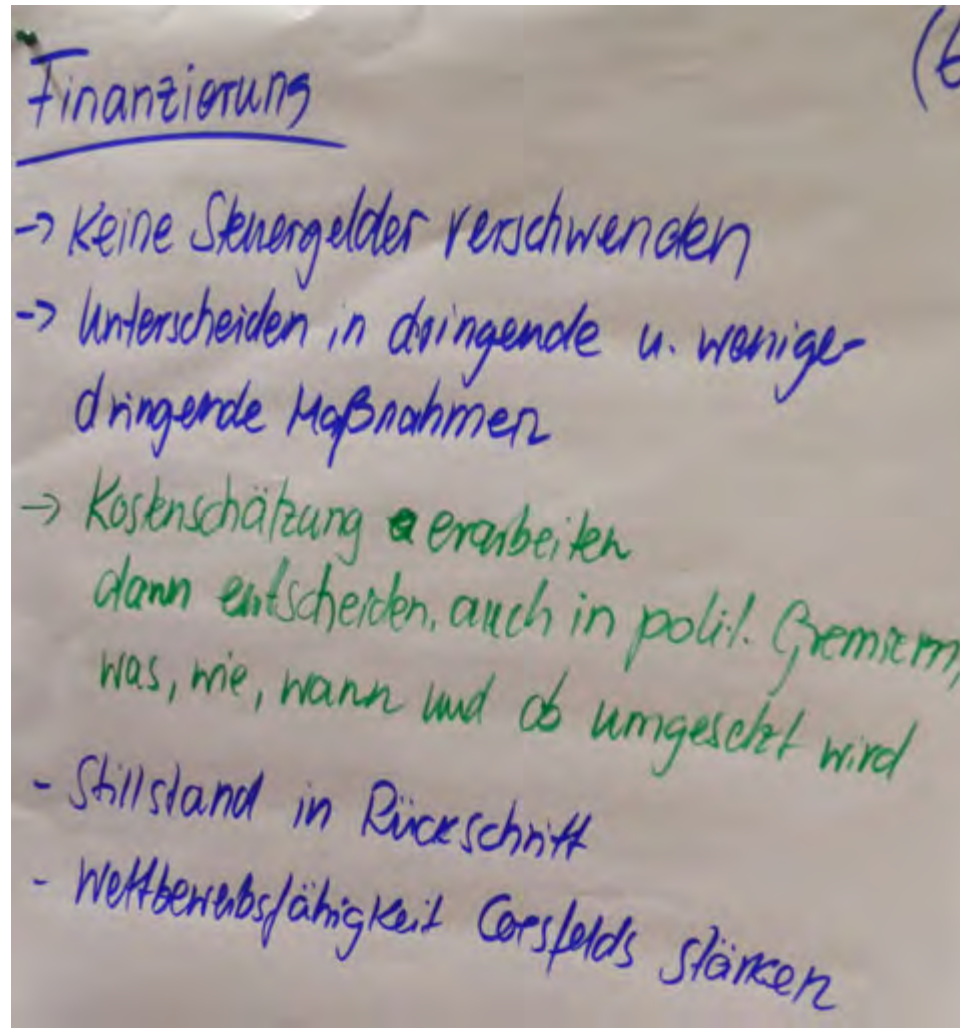 Finanzierung
(6
→ Keine Steuergelder verschwenden
→ Unterscheiden in dringende u. weniger
dringende Maßnahmen
→ Kostenschätzung erarbeiten
dann entscheiden, auch in polit. Gremien,
was, wie, wann und ob umgesetzt wird
- Stillstand in Rückschritt
- Wettbewerbsfähigkeit Coesfelds stärken